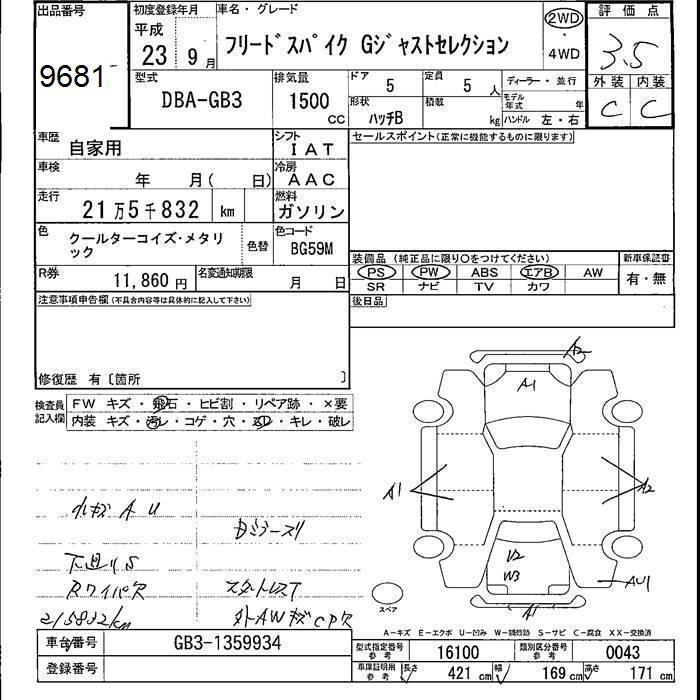 出品番号 初度登録年月 車名・グレード 評価点
9681 平成 23 9月 フリードスパイク Gジャストセレクション 2WD・4WD 3.5
型式 排気量 ドア 5 定員 5人 ディーラー・並行 外装 内装
DBA-GB3 1500cc 形状 ハッチB 積載 kg モデル年式 年 ハンドル 左・右 C C
車歴 自家用 シフト IAT セールスポイント(正常に機能するものに限ります)
車検 年 月( 日) 冷房 AAC
走行 21万5千832 km 燃料 ガソリン
色 クールターコイズ・メタリック 色替 色コード BG59M
装備品 (純正品に限り○をつけてください) 新車保証書
R券 11,860円 名変通知期限 月 日 PS PW ABS エアB AW 有・無
SR ナビ TV カワ
注意事項申告欄(不具合内容等は具体的に記入して下さい) 後日品
修復歴 有〔箇所 〕
検査員記入欄 FW キズ・飛石・ヒビ割・リペア跡・×要
内装 キズ・汚レ・コゲ・穴・ ・キレ・破レ
A2
A1
A1 A2
小キズ A U
下廻りS
Rワイパ欠 スタートレスT
U2
W3
AU1
215832km 外AWキズCP欠
A1
スペア
A-キズ E-エクボ U-凹み W-補修跡 S-サビ C-腐食 XX-交換済
車台番号 GB3-1359934 型式指定番号 参考 16100 類別区分番号 参考 0043
登録番号 車庫証明用 参考 長さ 421cm 幅 169cm 高さ 171cm